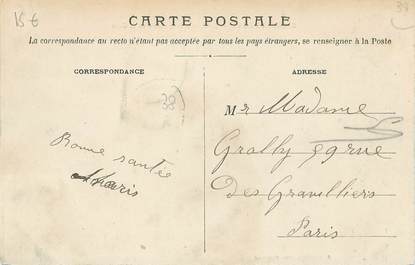 15 €
38
CARTE POSTALE
La correspondance au recto n'étant pas acceptée par tous les pays étrangers, se renseigner à la Poste
CORRESPONDANCE
38
Bonne santée
ADRESSE
Mr Madame
Grally 29 rue
Des Gravilliers
Paris